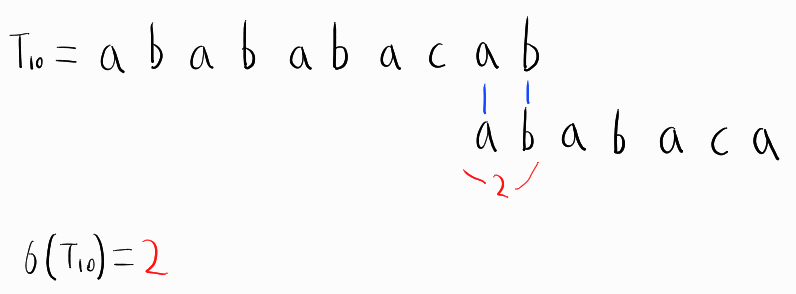 T₁₀ = a b a b a b a c a b
a b a b a c a
2
6(T₁₀) = 2